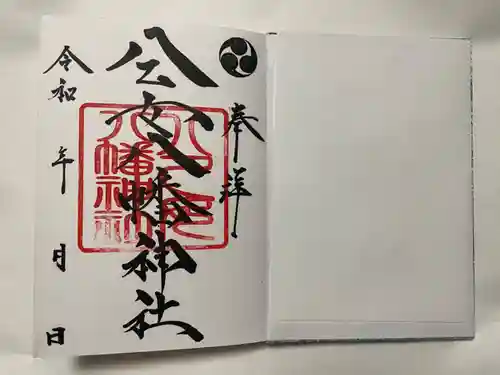 奉拝
公 八幡神社
令和 年 月 日
八幡神社